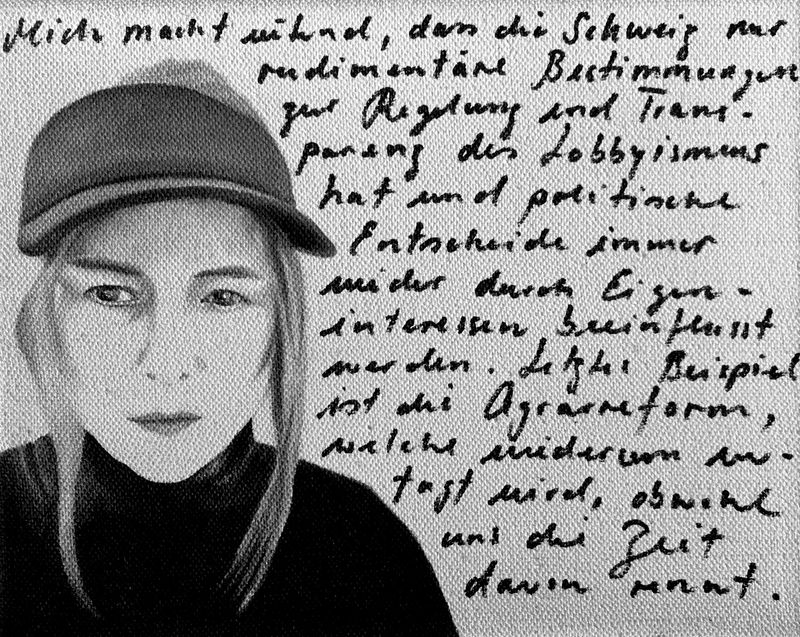 Mich macht wütend, dass die Schweiz nur
rudimentäre Bestimmungen
zur Regelung und Trans-
parenz des Lobbyismus
hat und politische
Entscheide immer
wieder durch Eigen-
interessen beeinflusst
werden. Letztes Beispiel
ist die Agrarreform,
welche wiederum ver-
tagt wird, obwohl
uns die Zeit
davon rennt.